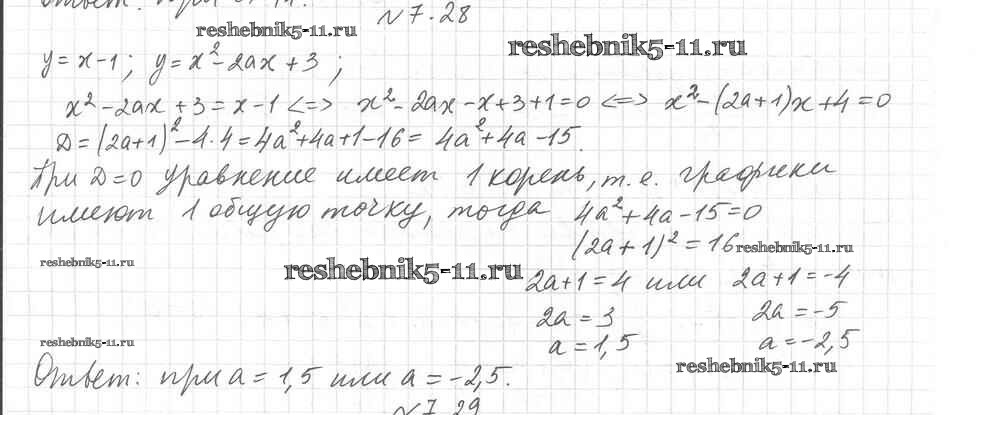 Ответ: при
№7.28
reshebnik5-11.ru
reshebnik5-11.ru
y = x-1; y = x²-2ax+3;
x²-2ax+3=x-1 <=> x²-2ax-x+3+1=0 <=> x²-(2a+1)x+4=0
D=(2a+1)²-4·4=4a²+4a+1-16=4a²+4a-15.
При D=0 уравнение имеет 1 корень, т.е. графики
имеют 1 общую точку, тогда 4a²+4a-15=0
(2a+1)²=16
reshebnik5-11.ru
reshebnik5-11.ru
reshebnik5-11.ru
2a+1=4 или 2a+1=-4
2a=3 2a=-5
a=1,5 a=-2,5
reshebnik5-11.ru
reshebnik5-11.ru
Ответ: при a=1,5 или a=-2,5.
№7.29